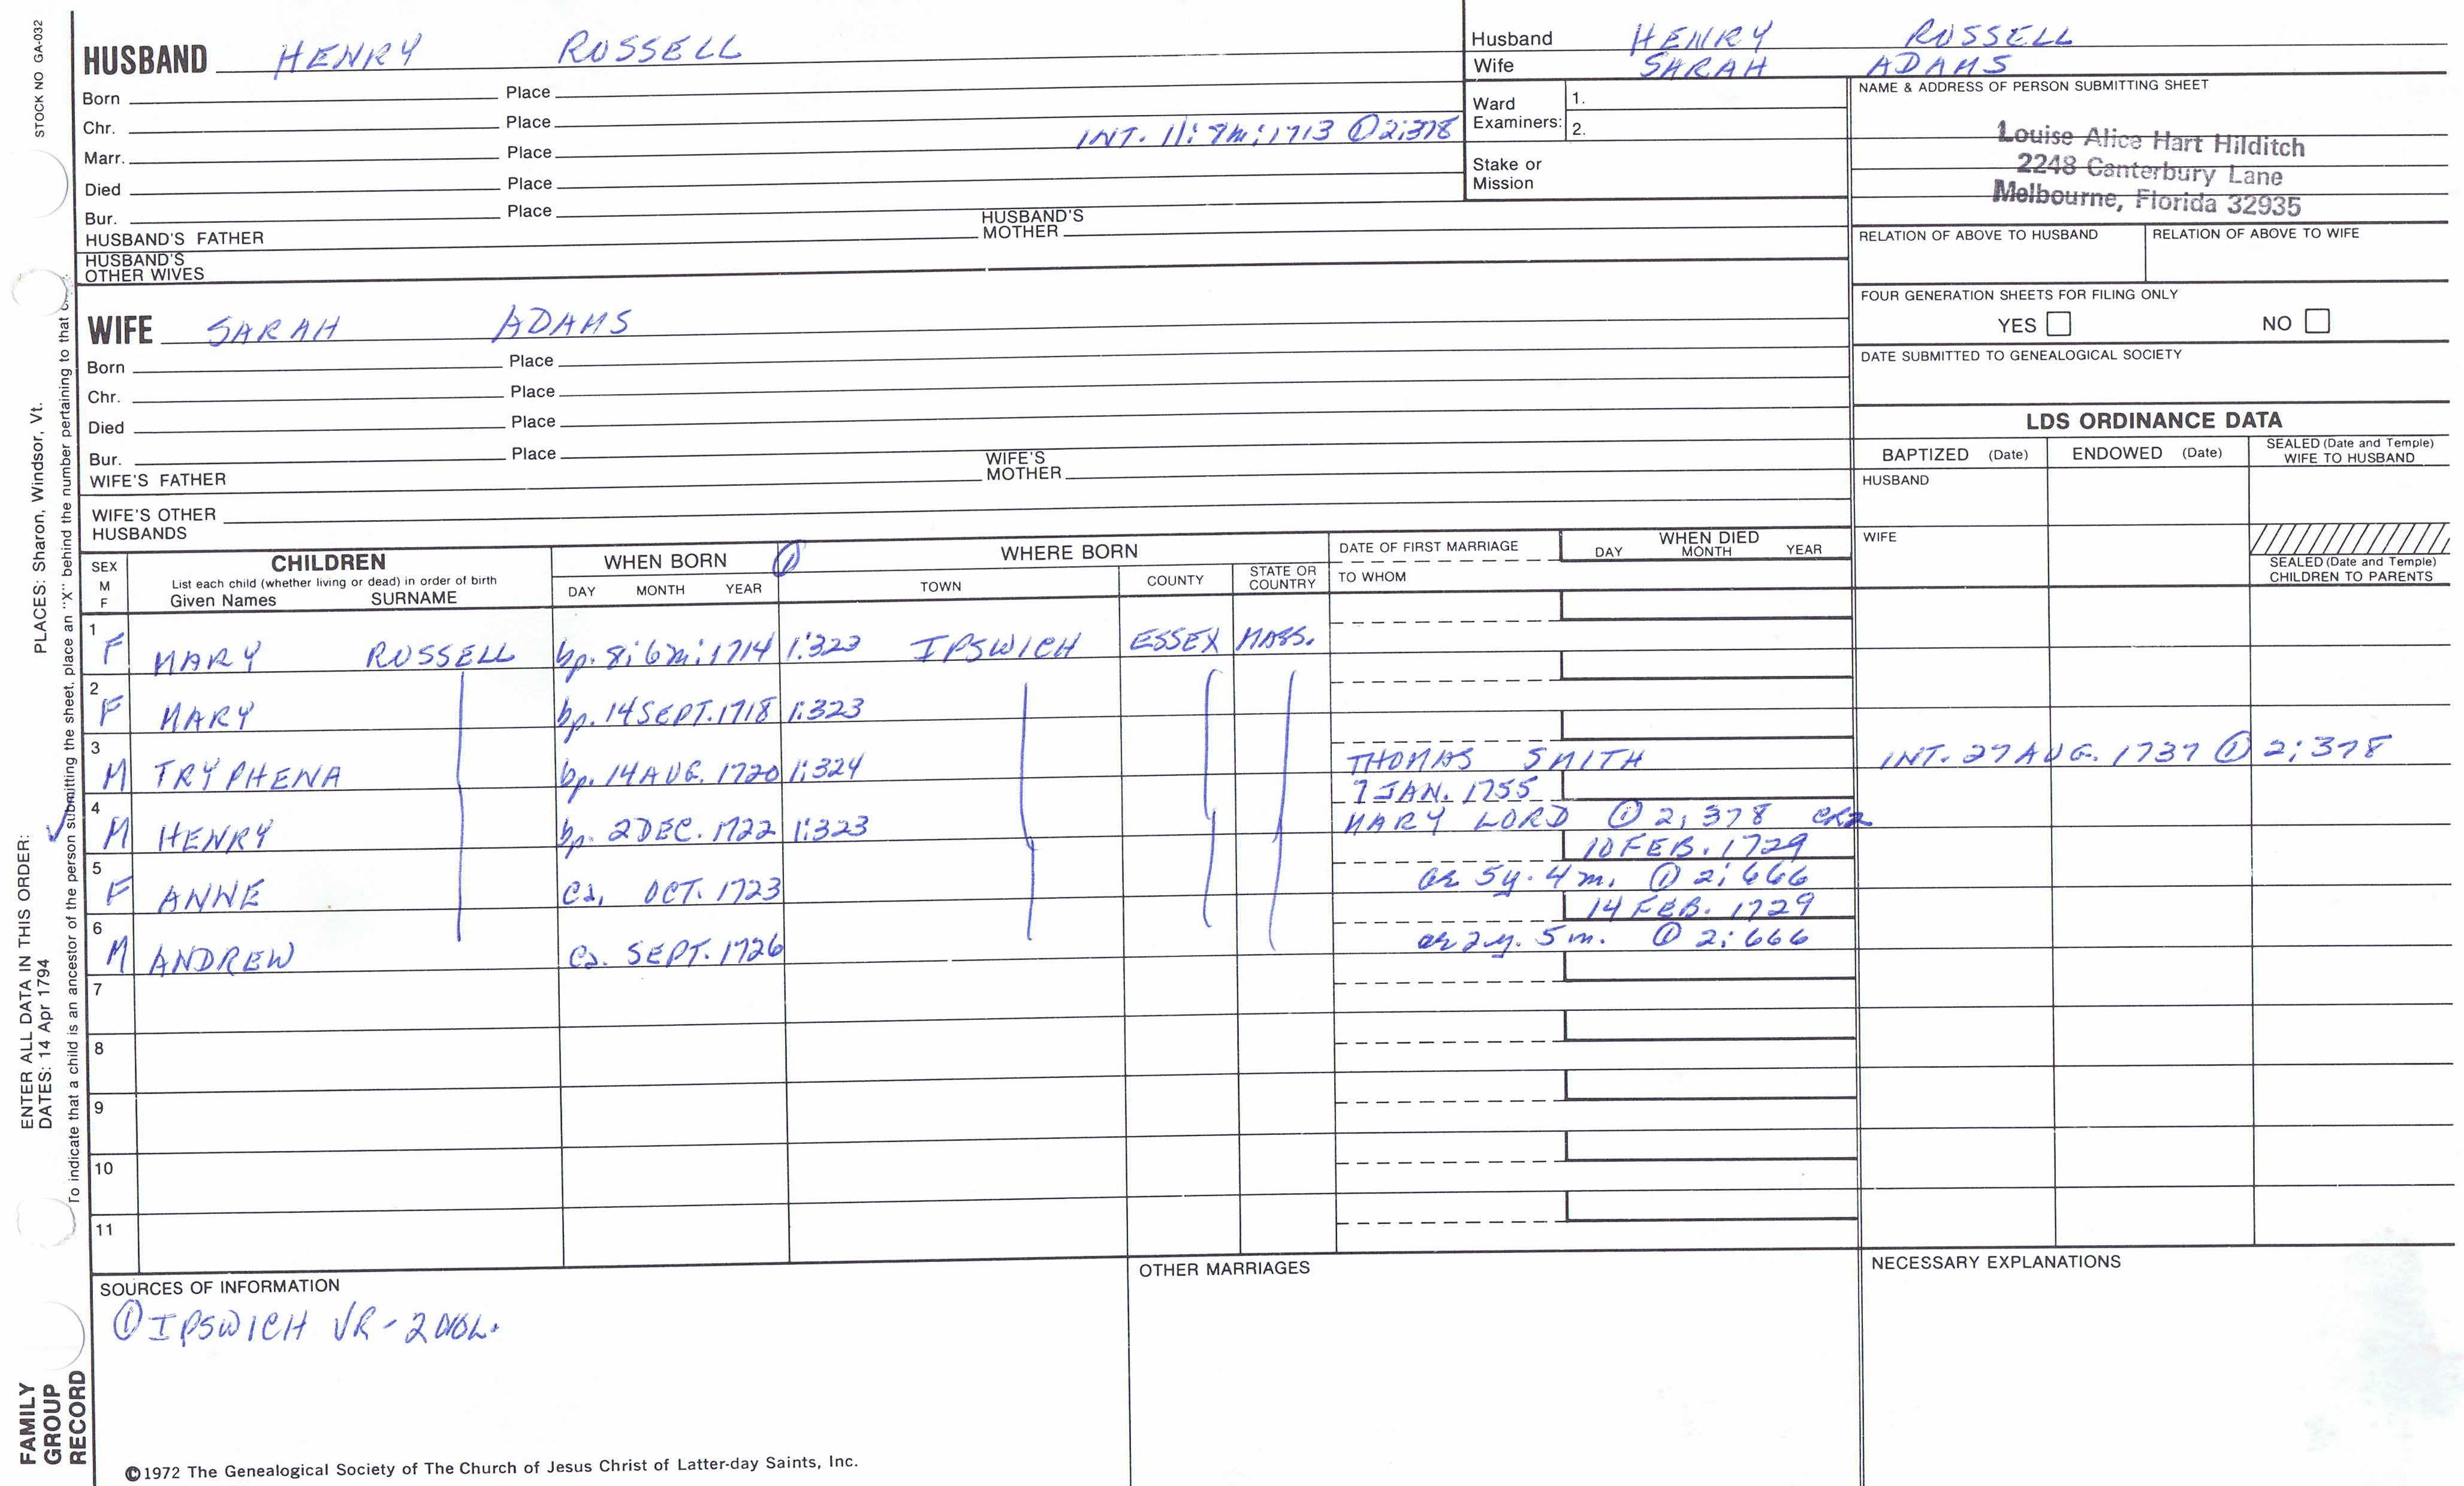 STOCK NO GA-032
PLACES: Sharon, Windsor, Vt.
ENTER ALL DATA IN THIS ORDER:
DATES: 14 Apr 1794
To indicate that a child is an ancestor of the person submitting the sheet, place an "X" behind the number pertaining to that
FAMILY
GROUP
RECORD
HUSBAND HENRY RUSSELL
Born Place
Chr. Place
INT. 11: 7m: 1713 ① 2:378
Marr. Place
Died Place
Bur. Place
HUSBAND'S FATHER HUSBAND'S MOTHER
HUSBAND'S
OTHER WIVES
Husband HENRY RUSSELL
Wife SARAH ADAMS
Ward
Examiners: 1.
2.
Stake or
Mission
NAME & ADDRESS OF PERSON SUBMITTING SHEET
Louise Alice Hart Hilditch
2248 Canterbury Lane
Melbourne, Florida 32935
RELATION OF ABOVE TO HUSBAND RELATION OF ABOVE TO WIFE
FOUR GENERATION SHEETS FOR FILING ONLY
YES NO
DATE SUBMITTED TO GENEALOGICAL SOCIETY
WIFE SARAH ADAMS
Born Place
Chr. Place
Died Place
Bur. Place
WIFE'S FATHER WIFE'S MOTHER
WIFE'S OTHER
HUSBANDS
LDS ORDINANCE DATA
BAPTIZED (Date) ENDOWED (Date) SEALED (Date and Temple) WIFE TO HUSBAND
HUSBAND
WIFE
SEALED (Date and Temple)
CHILDREN TO PARENTS
SEX
M
F
CHILDREN
List each child (whether living or dead) in order of birth
Given Names SURNAME
WHEN BORN ①
DAY MONTH YEAR
WHERE BORN
TOWN COUNTY STATE OR COUNTRY
DATE OF FIRST MARRIAGE
TO WHOM
WHEN DIED
DAY MONTH YEAR
1 F MARY RUSSELL bp. 8: 6m: 1714 1:323 IPSWICH ESSEX MASS.
2 F MARY bp. 14 SEPT. 1718 1:323
3 M TRYPHENA bp. 14 AUG. 1720 1:324 THOMAS SMITH INT. 27 AUG. 1737 ① 2:378
7 JAN. 1755
4 M HENRY bp. 2 DEC. 1722 1:323 MARY LORD ① 2:378 CR2
10 FEB. 1729
5 F ANNE ca. OCT. 1723 ae 5y. 4m. ① 2:666
14 FEB. 1729
6 M ANDREW ca. SEPT. 1726 ae 2y. 5m. ① 2:666
7
8
9
10
11
SOURCES OF INFORMATION
① IPSWICH VR - 2 VOL.
OTHER MARRIAGES
NECESSARY EXPLANATIONS
©1972 The Genealogical Society of The Church of Jesus Christ of Latter-day Saints, Inc.